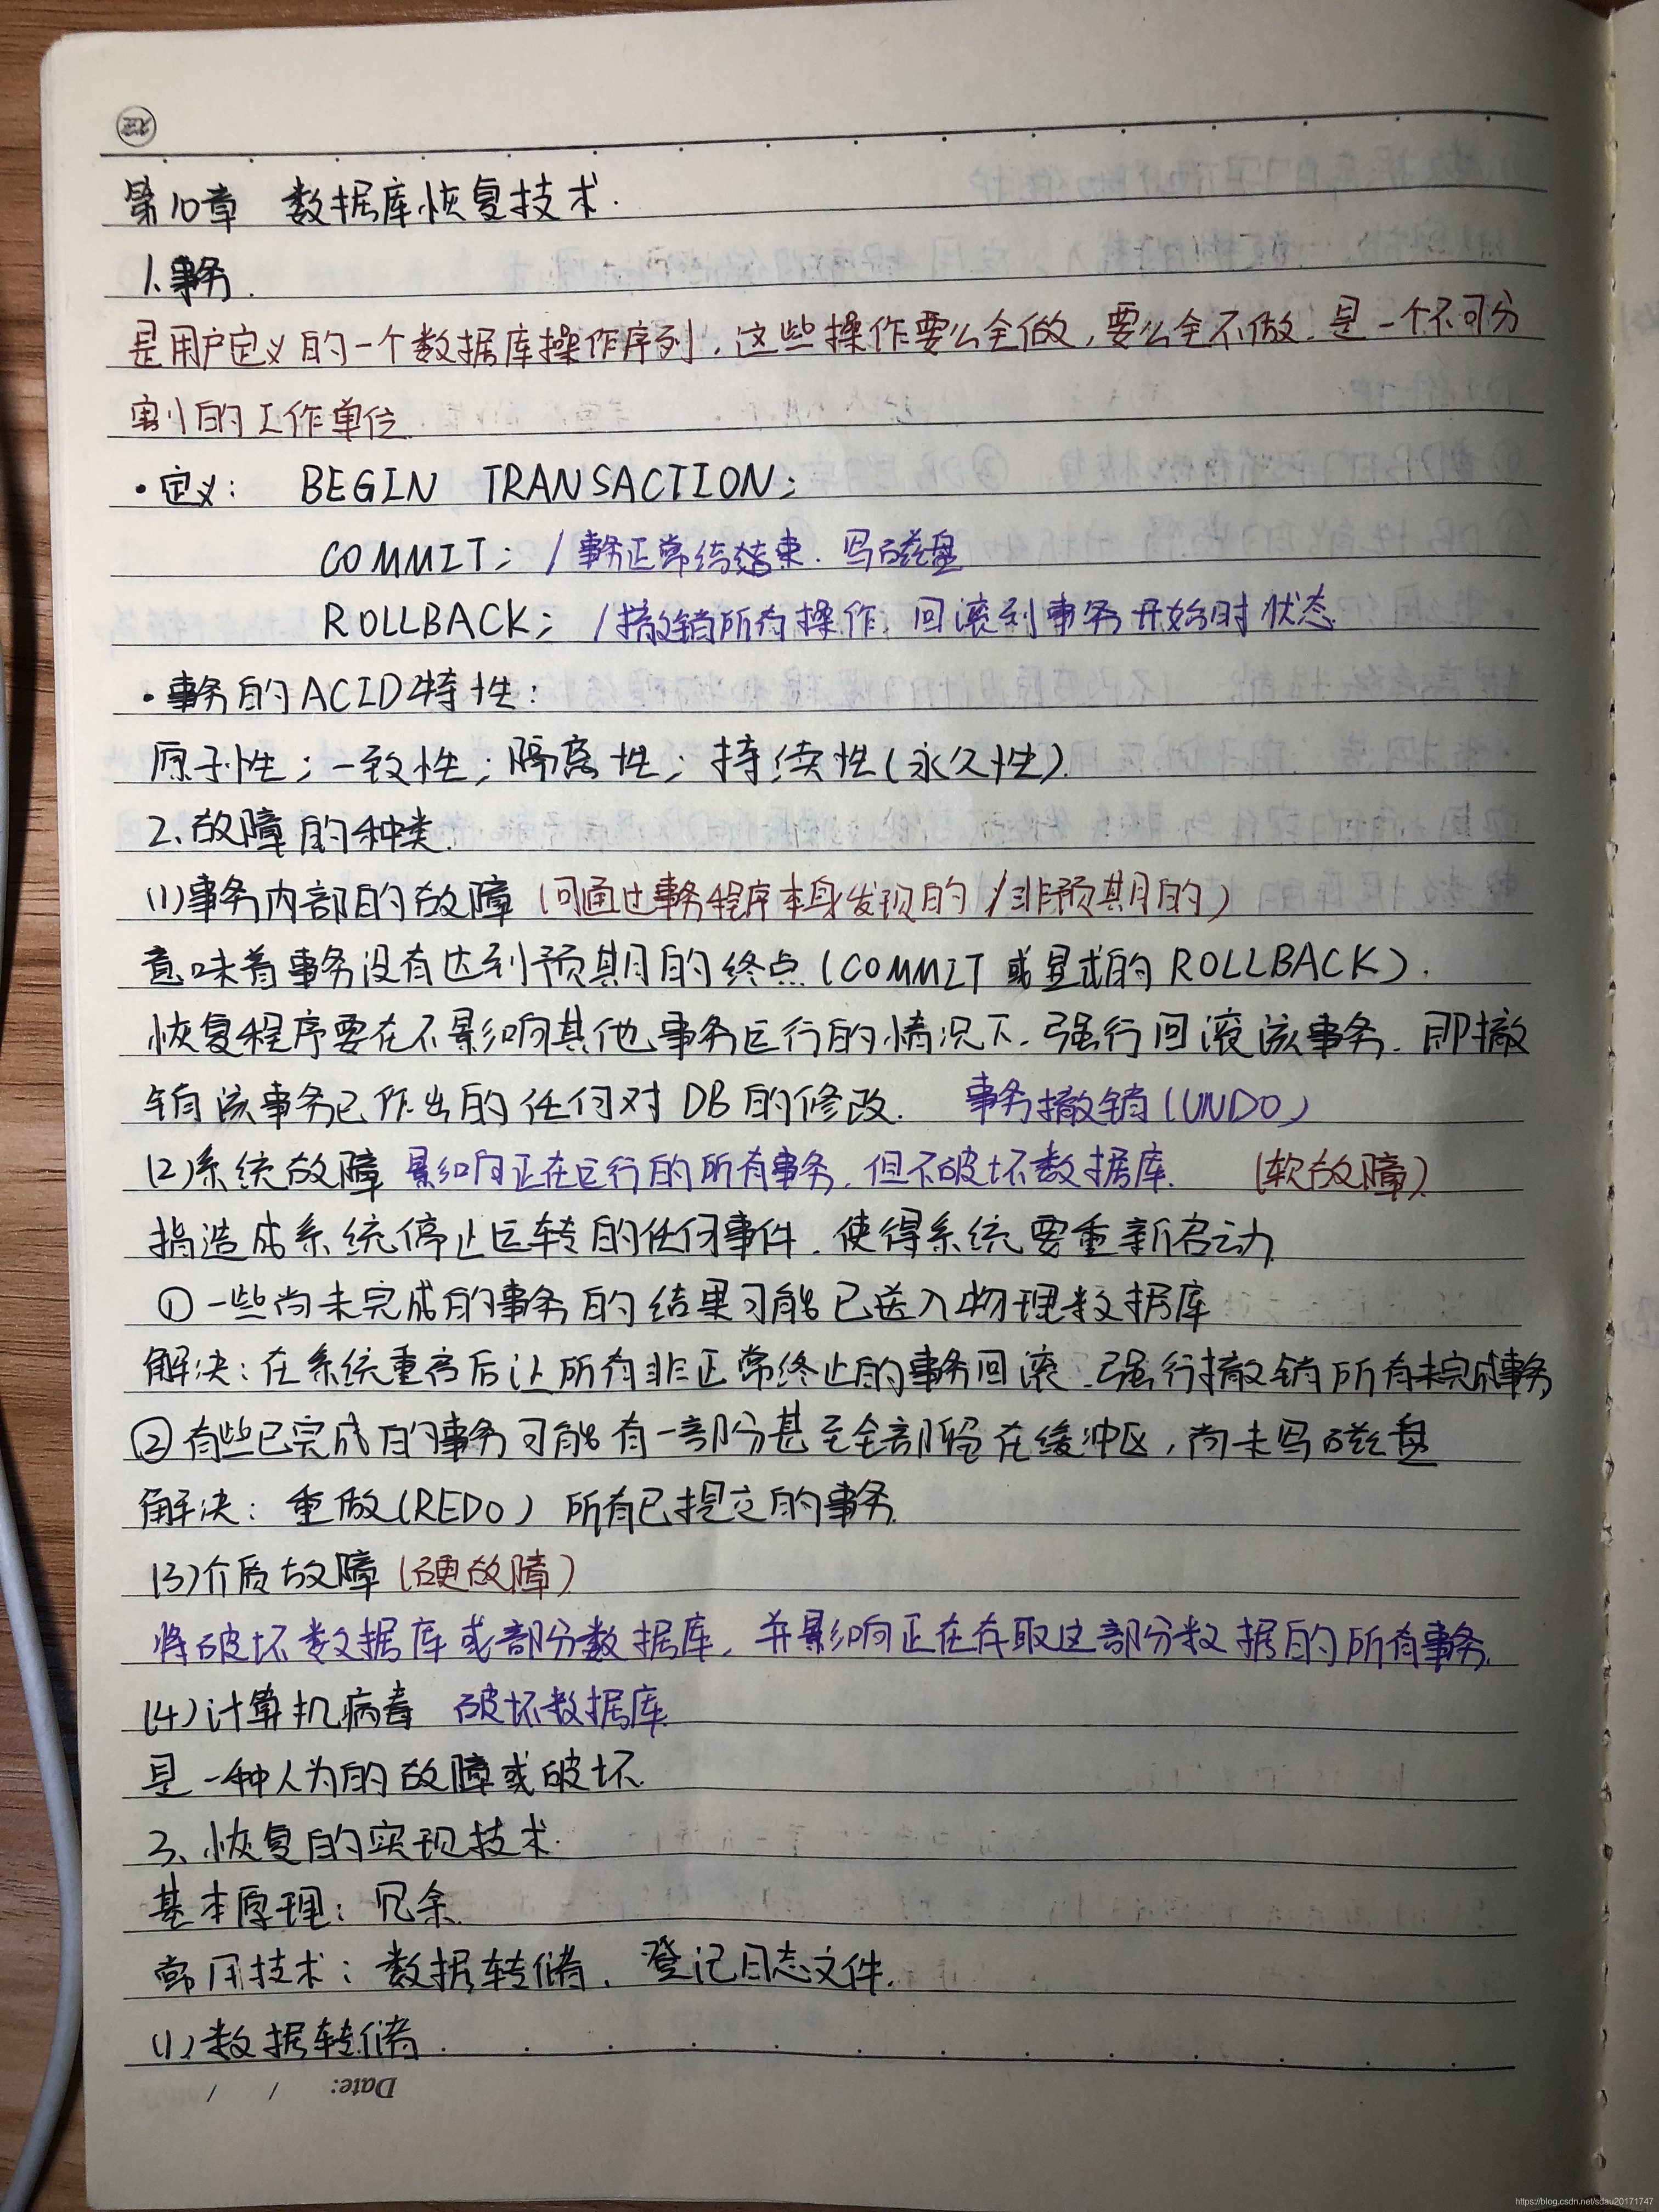 第10章 数据库恢复技术.
1.事务.
是用户定义的一个数据库操作序列,这些操作要么全做,要么全不做,是一个不可分
割的工作单位.
·定义: BEGIN TRANSACTION;
COMMIT; /事务正常结束.写磁盘
ROLLBACK; /撤销所有操作,回滚到事务开始时状态.
·事务的ACID特性:
原子性;一致性;隔离性;持续性(永久性).
2、故障的种类.
(1)事务内部的故障(可通过事务程序本身发现的/非预期的)
意味着事务没有达到预期的终点(COMMIT或显式的ROLLBACK).
恢复程序要在不影响其他事务运行的情况下,强行回滚该事务,即撤
销该事务已作出的任何对DB的修改. 事务撤销(UNDO)
(2)系统故障 影响正在运行的所有事务,但不破坏数据库. (软故障)
指造成系统停止运转的任何事件,使得系统要重新启动
①一些尚未完成的事务的结果可能已送入物理数据库
解决:在系统重启后让所有非正常终止的事务回滚,强行撤销所有未完成事务
②有些已完成的事务可能有一部分甚至全部留在缓冲区,尚未写磁盘
解决:重做(REDO)所有已提交的事务.
(3)介质故障(硬故障)
将破坏数据库或部分数据库,并影响正在存取这部分数据的所有事务.
(4)计算机病毒 破坏数据库.
是一种人为的故障或破坏.
3、恢复的实现技术.
基本原理:冗余.
常用技术:数据转储,登记日志文件.
(1)数据转储.
Date: / /
https://blog.csdn.net/sdau20171747